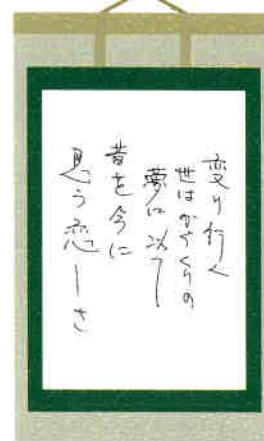 変り行く
世はからくりの
夢に以て
昔を今に
思う恋しさ